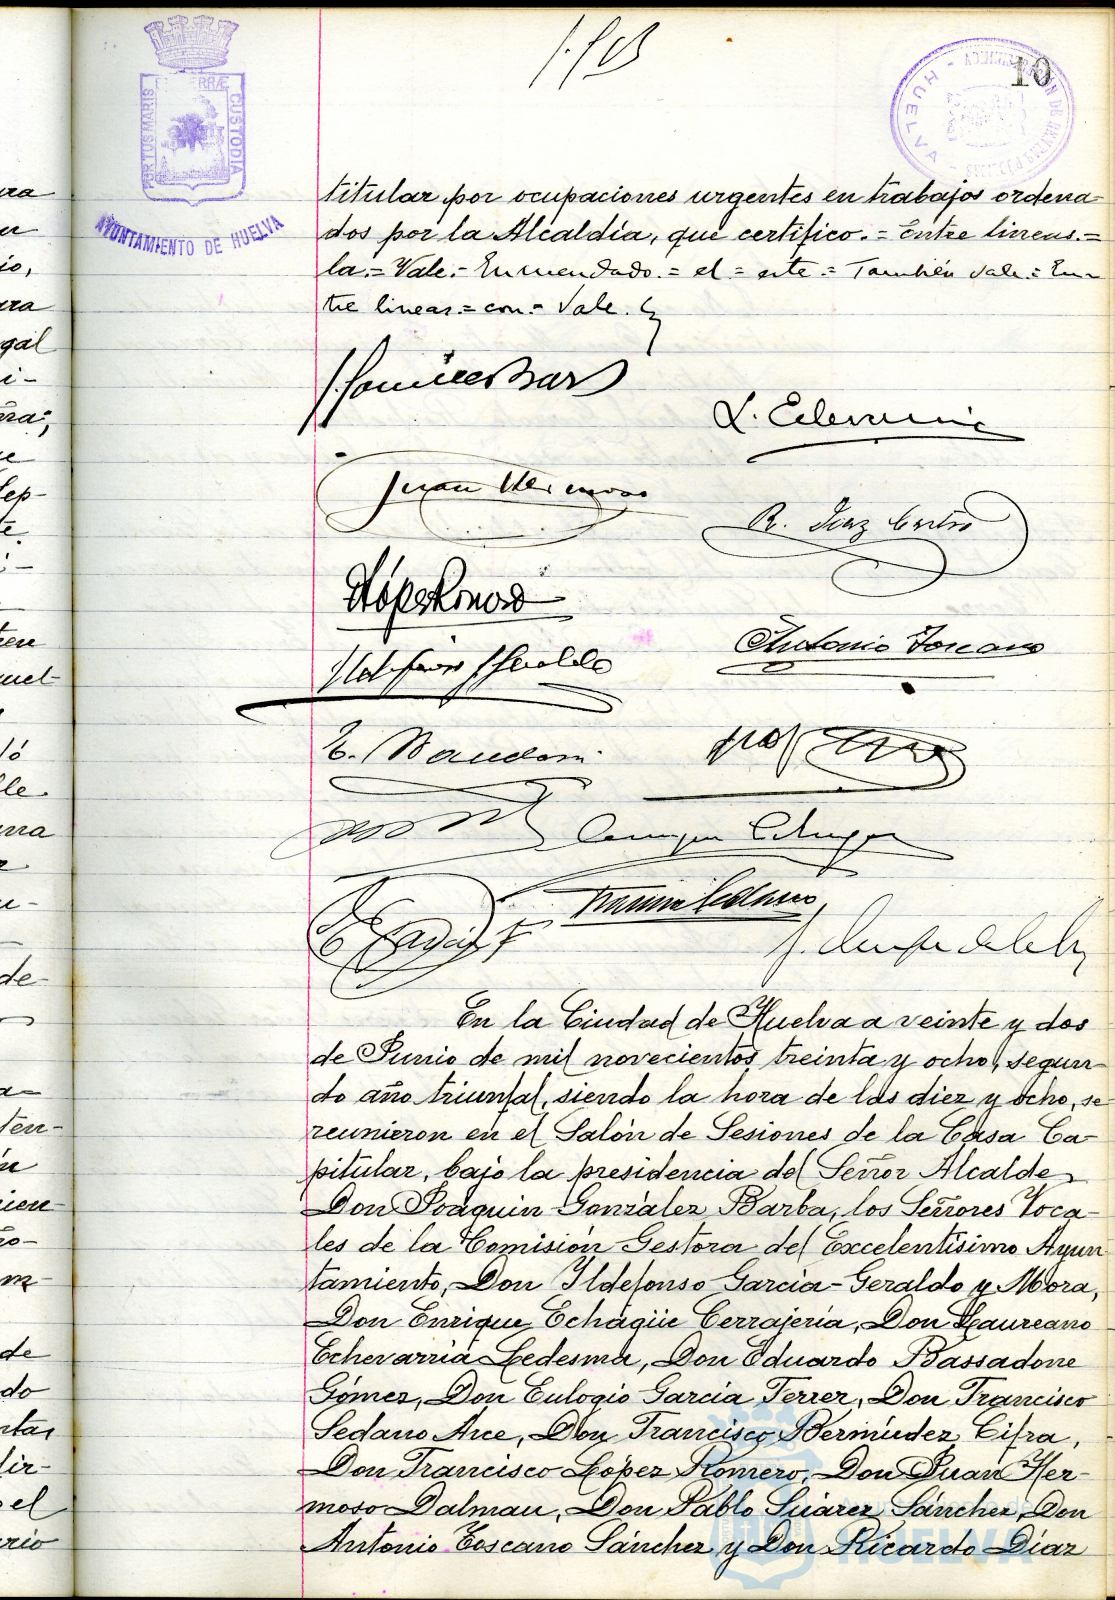 10
PORTUS MARIS
TERRÆ CUSTODIA
AYUNTAMIENTO DE HUELVA
HUELVA
titular por ocupaciones urgentes en trabajos ordena-
dos por la Alcaldía, que certifico.= Entre lineas.=
la.= Vale.- Enmendado.= el = este = También vale.= En-
tre lineas.= con.- Vale.
L. Echevarria
Juan Hermoso
R. Diaz
López Romero
Antonio Toscano
E. Bassadone
En la Ciudad de Huelva a veinte y dos
de Junio de mil novecientos treinta y ocho, segun-
do año triunfal, siendo la hora de las diez y ocho, se
reunieron en el Salón de Sesiones de la Casa Ca-
pitular, bajo la presidencia del Señor Alcalde
Don Joaquin González Barba, los Señores Voca-
les de la Comisión Gestora del Excelentísimo Ayun
tamiento, Don Ildefonso Garcia-Geraldo y Mora,
Don Enrique Echagüe Cerrajeria, Don Laureano
Echevarria Ledesma, Don Eduardo Bassadone
Gómez, Don Eulogio Garcia Ferrer, Don Francisco
Sedano Arce, Don Francisco Bermúdez Cifra,
Don Francisco López Romero, Don Juan Her-
moso Dalmau, Don Pablo Suárez Sánchez, Don
Antonio Toscano Sánchez y Don Ricardo Díaz